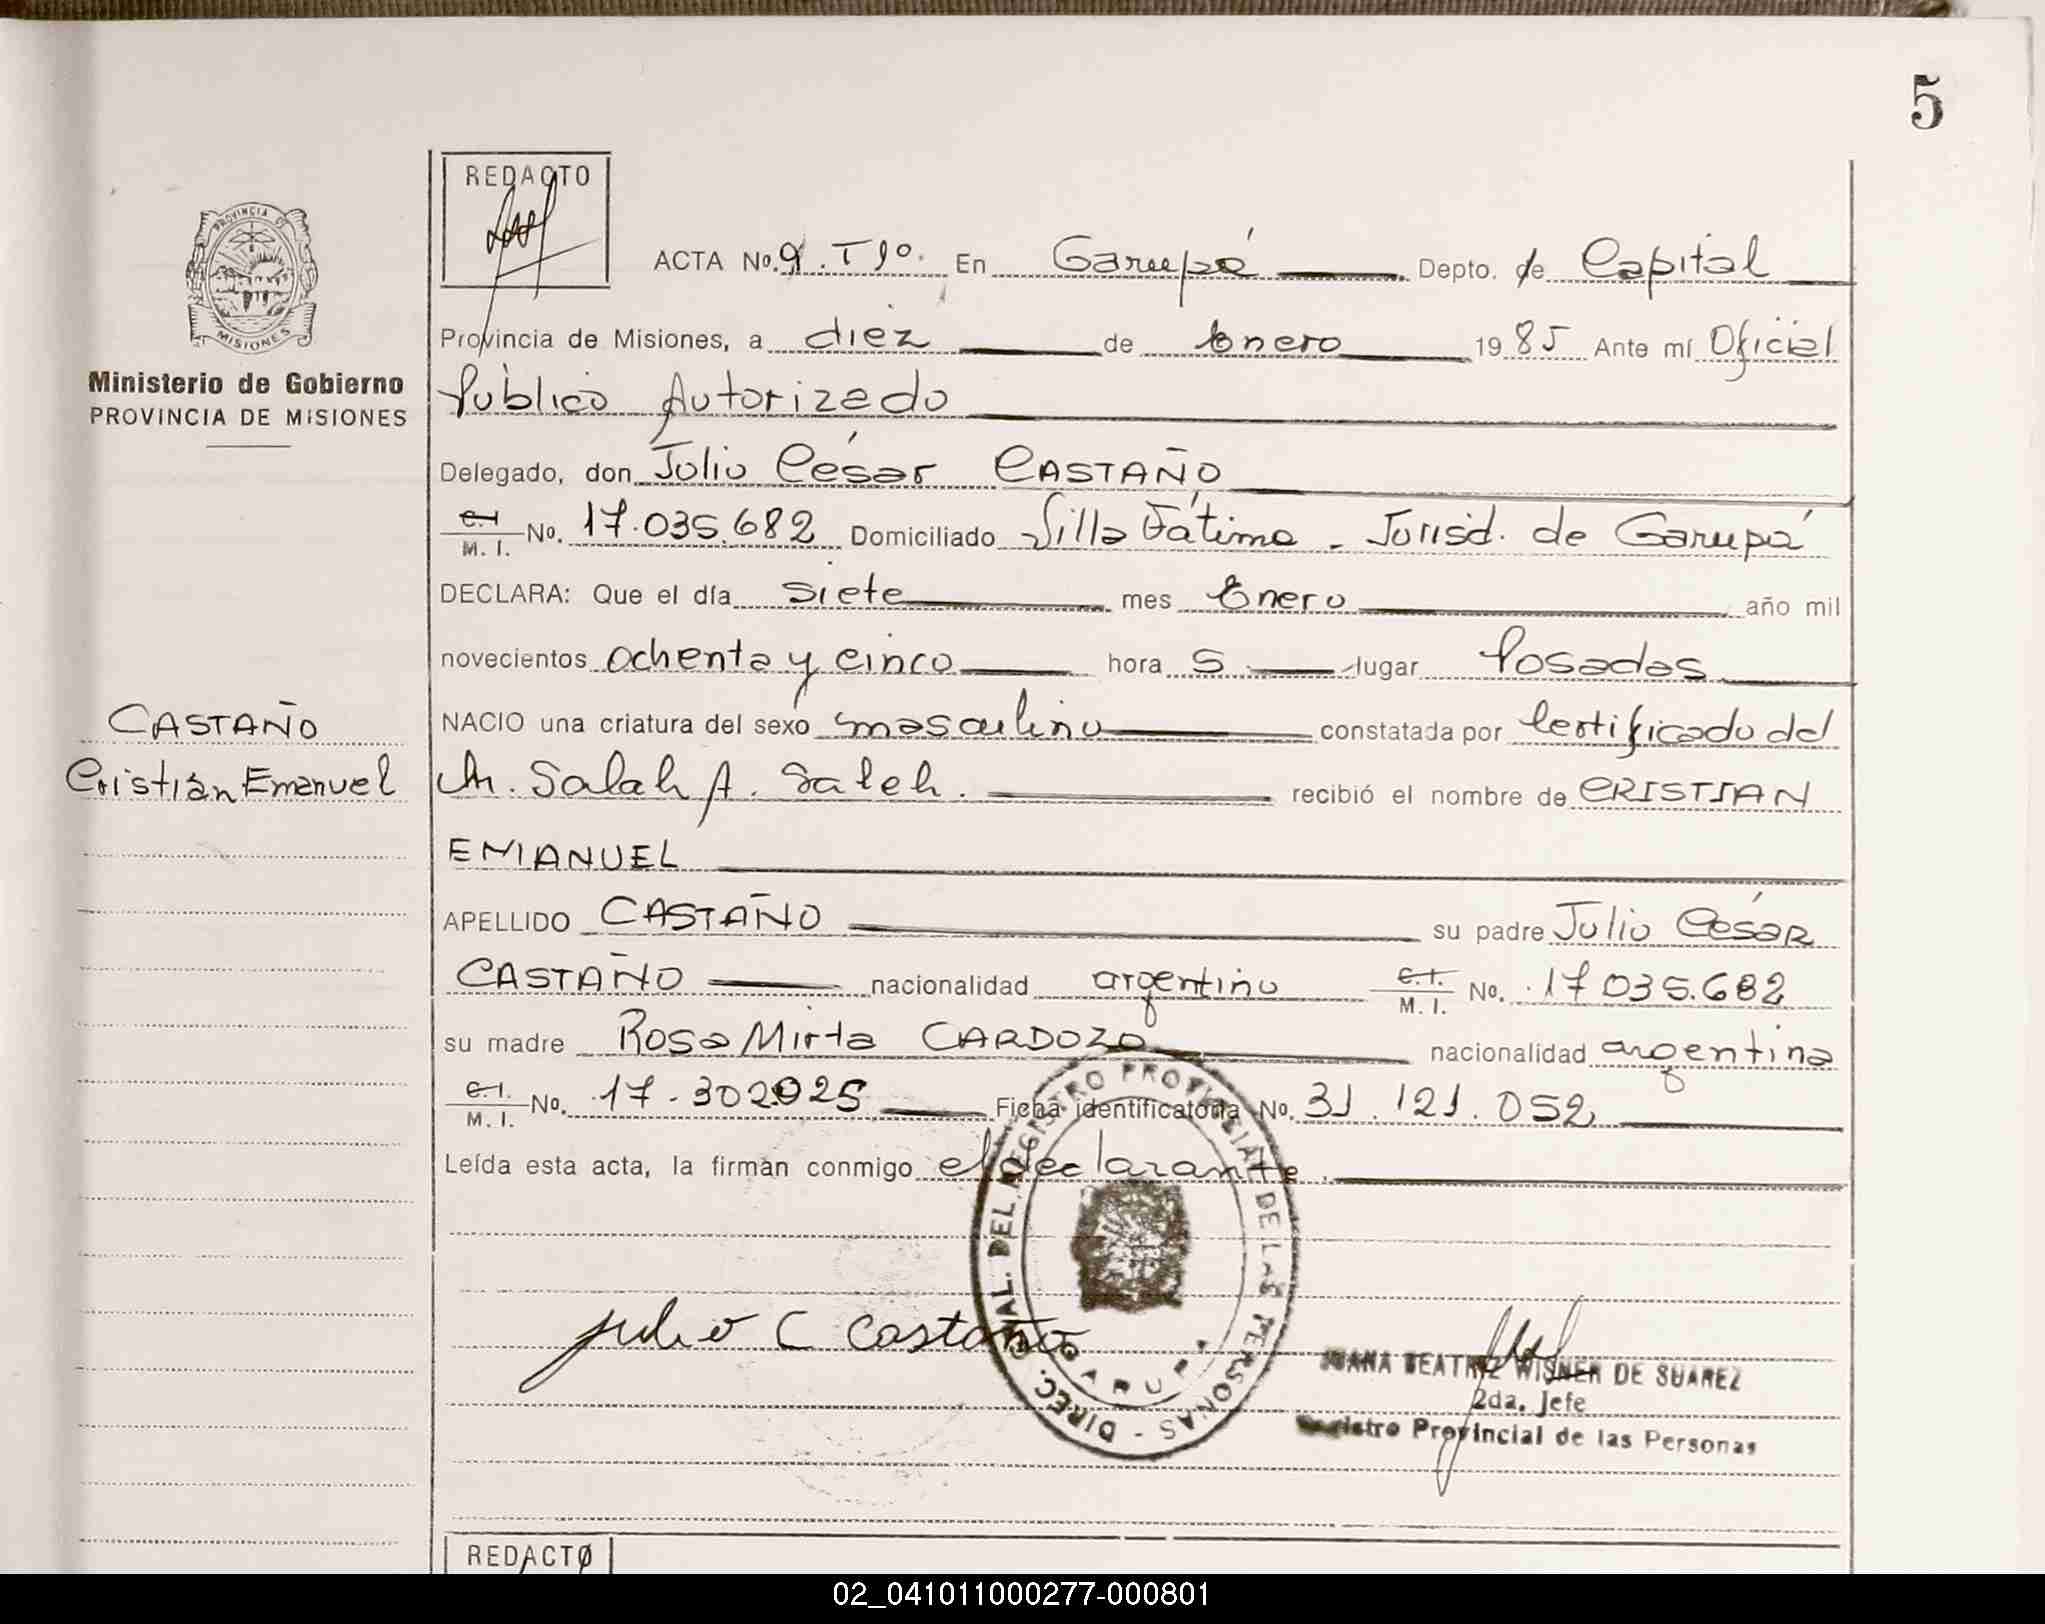 5
REDACTO
PROVINCIA DE
MISIONES
Ministerio de Gobierno
PROVINCIA DE MISIONES
ACTA No. 9. Tº 1º. En Garupá Depto. de Capital
Provincia de Misiones, a diez de Enero 1985 Ante mí Oficial
Público Autorizado
Delegado, don Julio César CASTAÑO
C.I. M. I. No. 17.035.682 Domiciliado Villa Fátima - Jurisd. de Garupá
DECLARA: Que el día siete mes Enero año mil
novecientos ochenta y cinco hora 5 lugar Posadas
NACIO una criatura del sexo masculino constatada por Certificado del
CASTAÑO
Cristián Emanuel
Dr. Salah A. Saleh. recibió el nombre de CRISTIAN
EMANUEL
APELLIDO CASTAÑO su padre Julio César
CASTAÑO nacionalidad argentino C.I. M. I. No. 17.035.682
su madre Rosa Mirta CARDOZO nacionalidad argentina
C.I. M. I. No. 17.302.025 Ficha identificatoria No. 31.121.052
Leída esta acta, la firman conmigo el declarante.
Julio C Castaño
DIREC. GRAL. DEL REGISTRO PROVINCIAL DE LAS PERSONAS -
GARUPA
JUANA BEATRIZ WISNER DE SUAREZ
2da. Jefe
Registro Provincial de las Personas
REDACTO
02_041011000277-000801